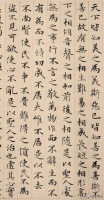 天下皆知美之為美斯惡已皆知善之為善斯不
善已故有無相生難易相成長短相形高
下相傾音聲相和前後相隨是以聖人處
無為之事行不言之教萬物作焉而不辭生而不
有為而不恃功成不居夫惟不居是以不
去不尚賢使民不爭不貴難得之貨使民
不為盜不見可欲使心不亂是以聖人之治也虛其心